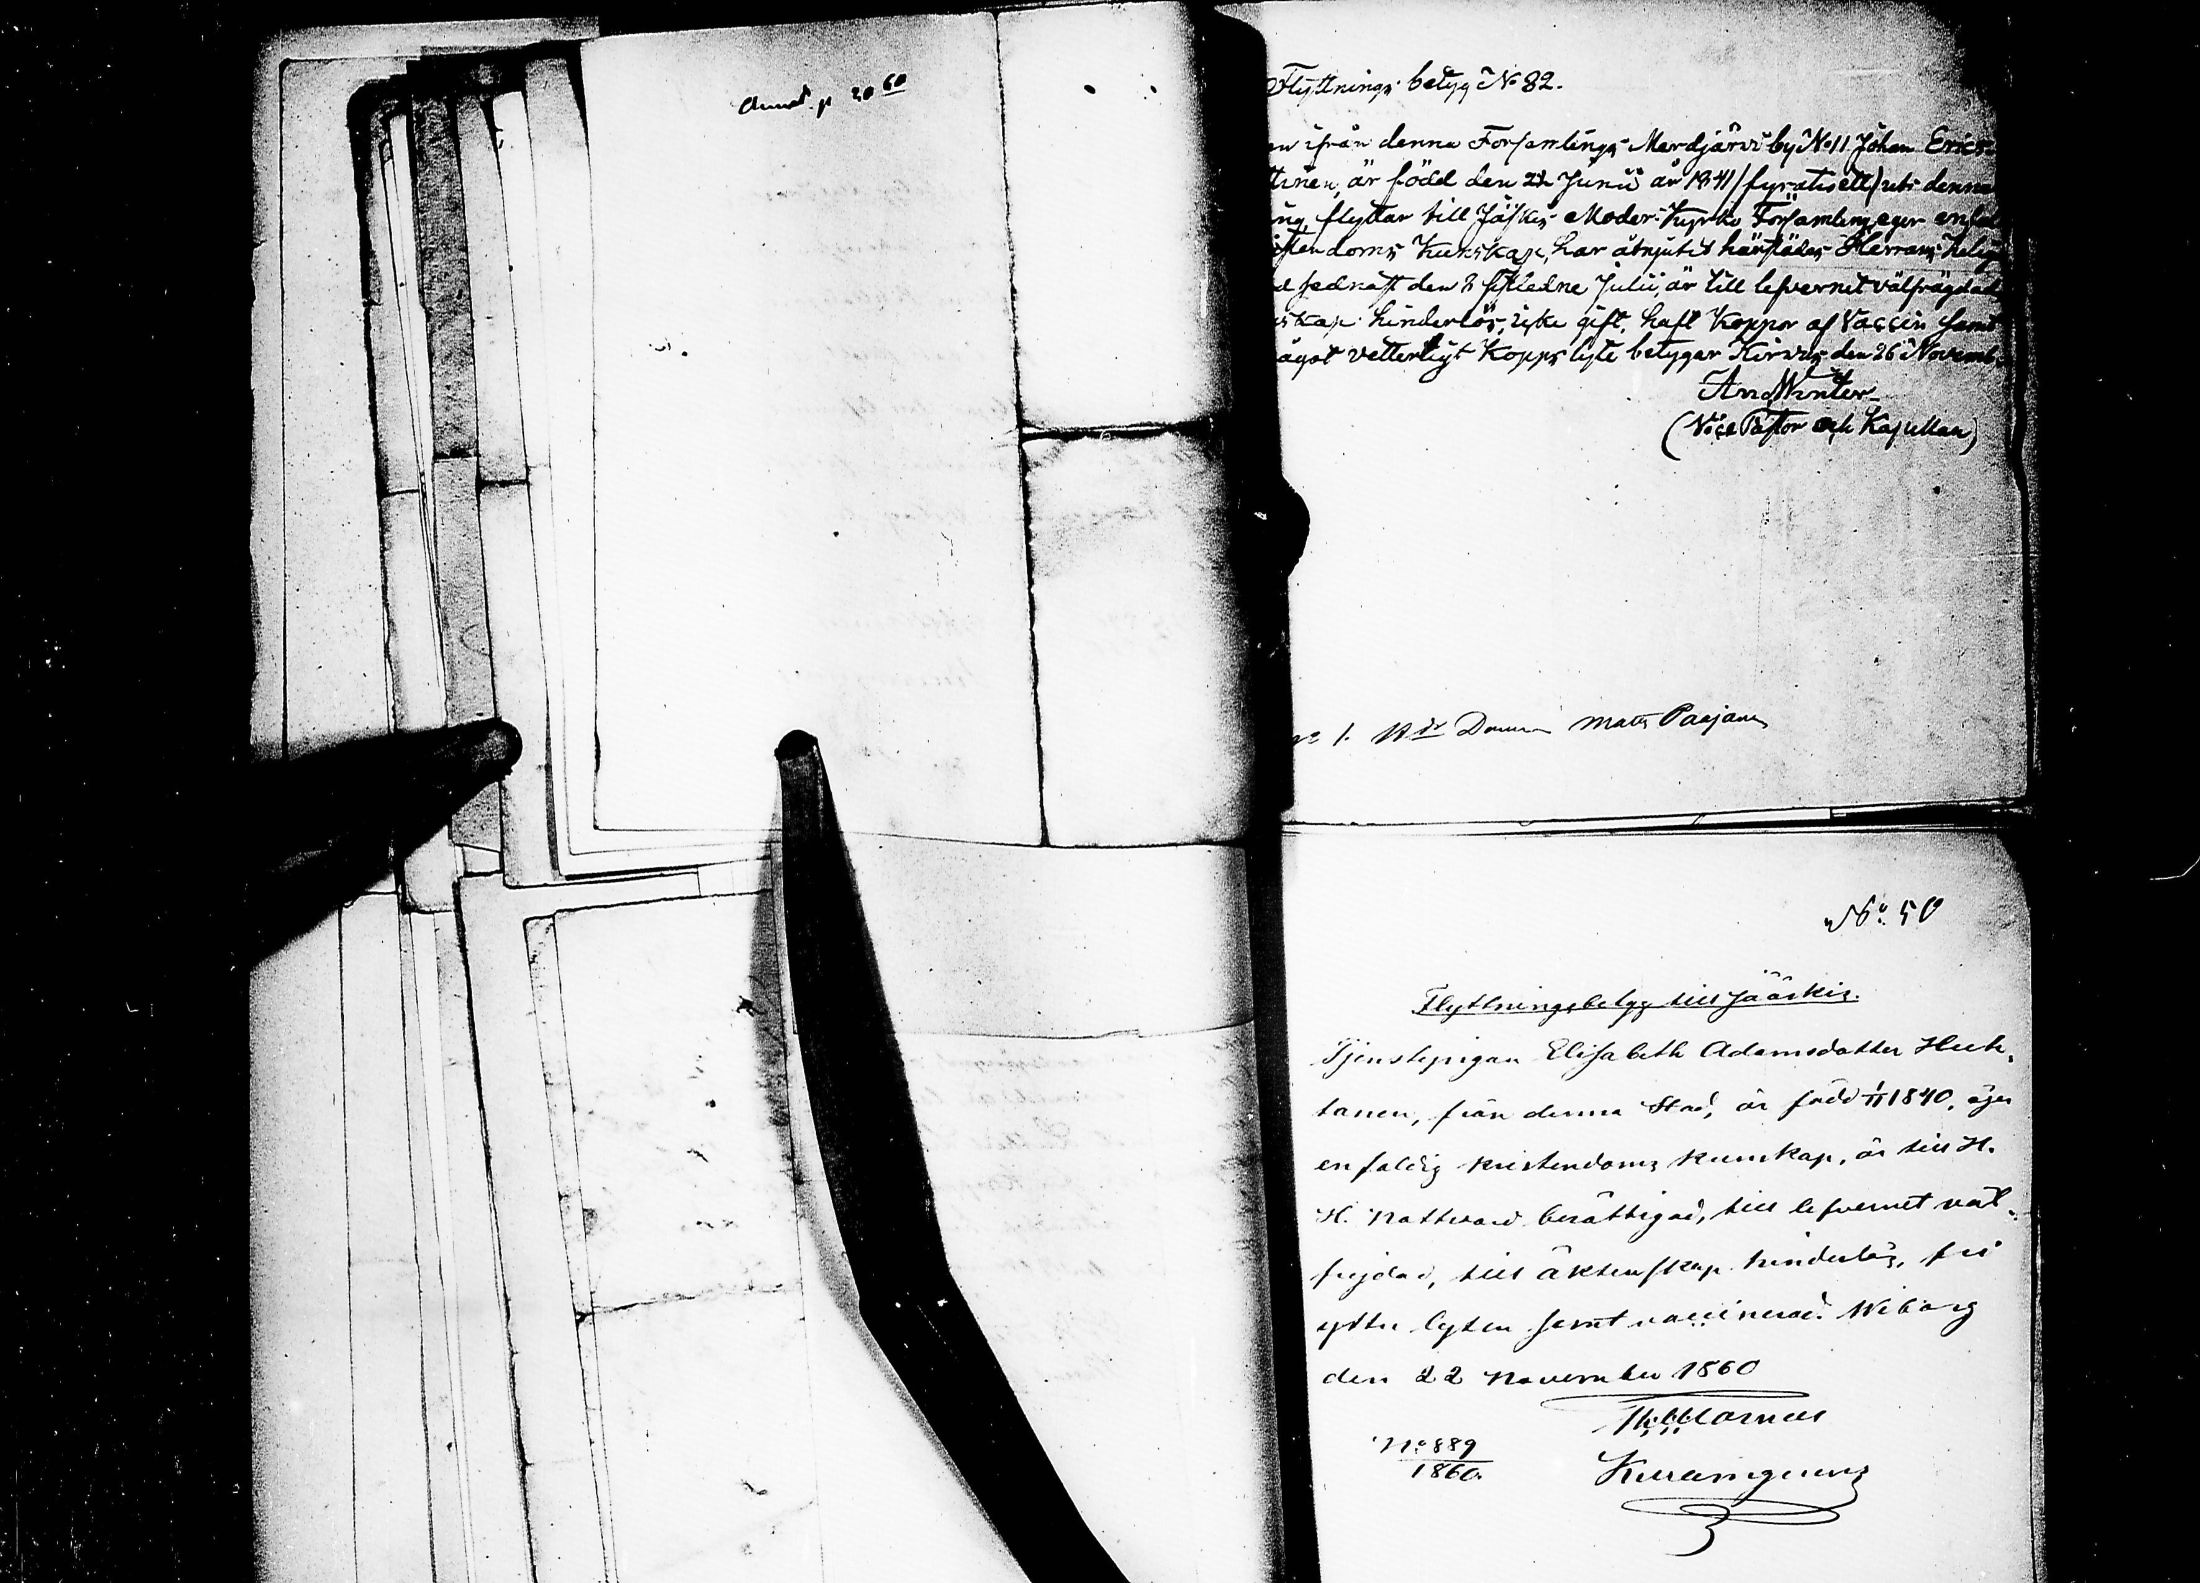 Flyttnings betyg No 82.
en ifrån denna Församlings Merdjärvi by No 11 Johan Erics-
tinen, är född den 21 Junii år 1841 (fyratiett) uti denna
ing, flyttar till Jäskis Moder-Kyrko Församling, eger enfal
istendoms Kunskap, har åtnjutit härstädes Herrans helig
d sednast den 8 sistledne Julii, är till lefvernet välfrägdad
skap hinderlös, icke gift, haft Koppor af Vaccin samt
ågot vetterligt Kopps lyte betygar Kirvus den 26 Novemb.
And Winter
(Vice Pastor och Kapellan)
No 1. Mats Paajanen
No. 50
Flyttningsbetyg till Jääskis.
Tjenstepigan Elisabeth Adamsdotter Huh-
tanen, från denna Stad, är född 1/11 1840, äger
enfaldig kristendoms kunskap, är till H.
H. Nattvard berättigad, till lefvernet väl-
frejdad, till äktenskap hinderlös, fri
yttre lyten samt vaccinerad. Wiborg
den 22 November 1860
No 889
1860.